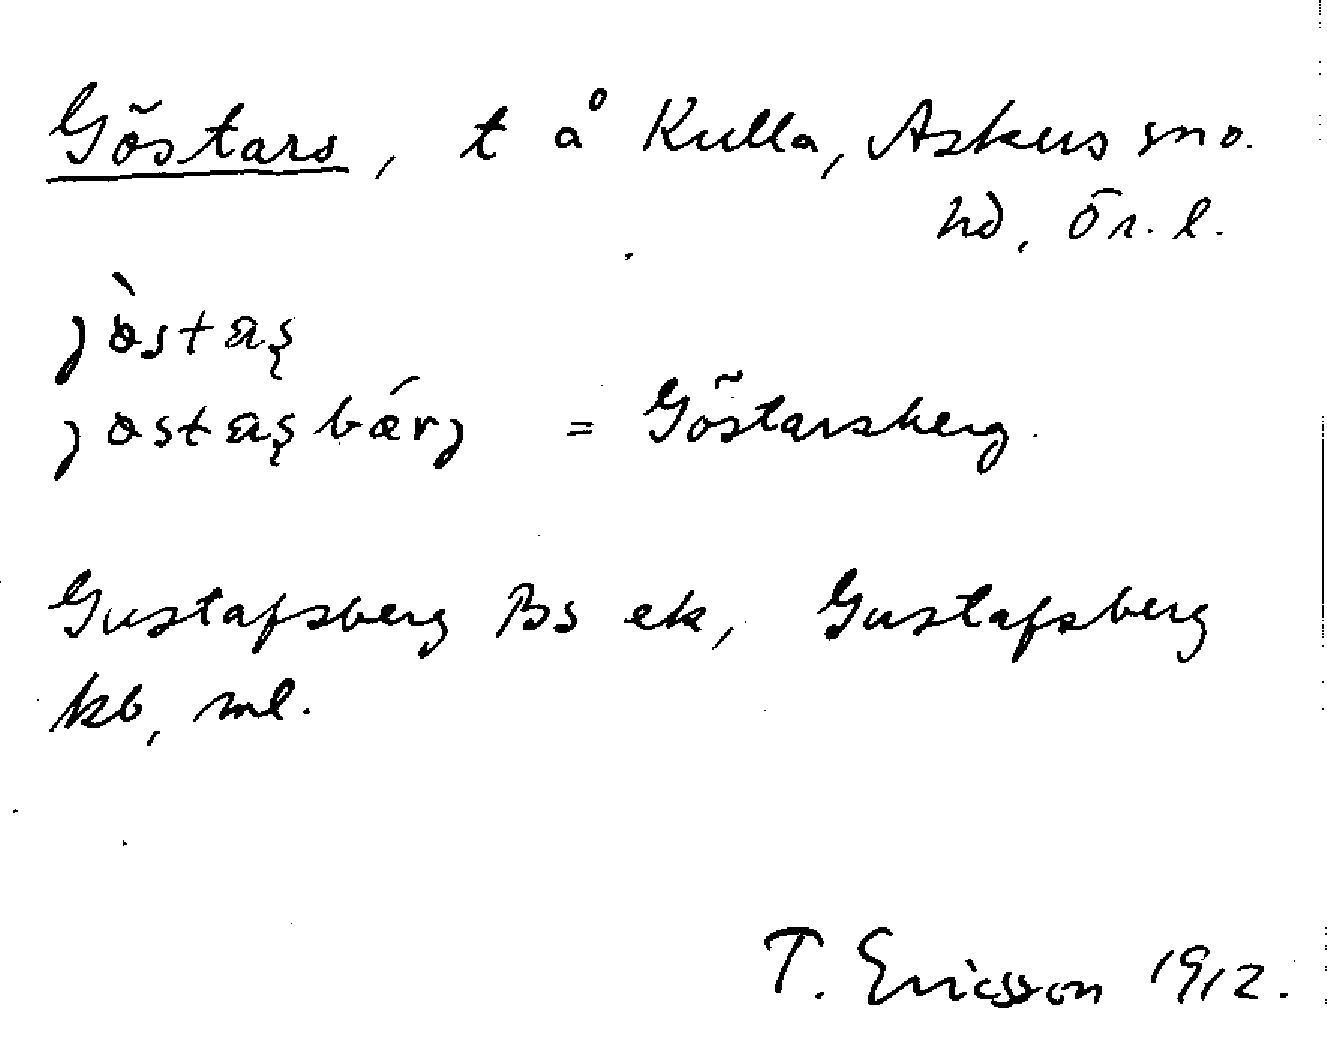 Göstars, t å Kulla, Askers sn o.
hd, Ör. l.
jòstaʂ
jostaʂbǽrj = Göstarsberg.
Gustafsberg Bs ek, Gustafsberg
kb, ml.
T. Ericsson 1912.